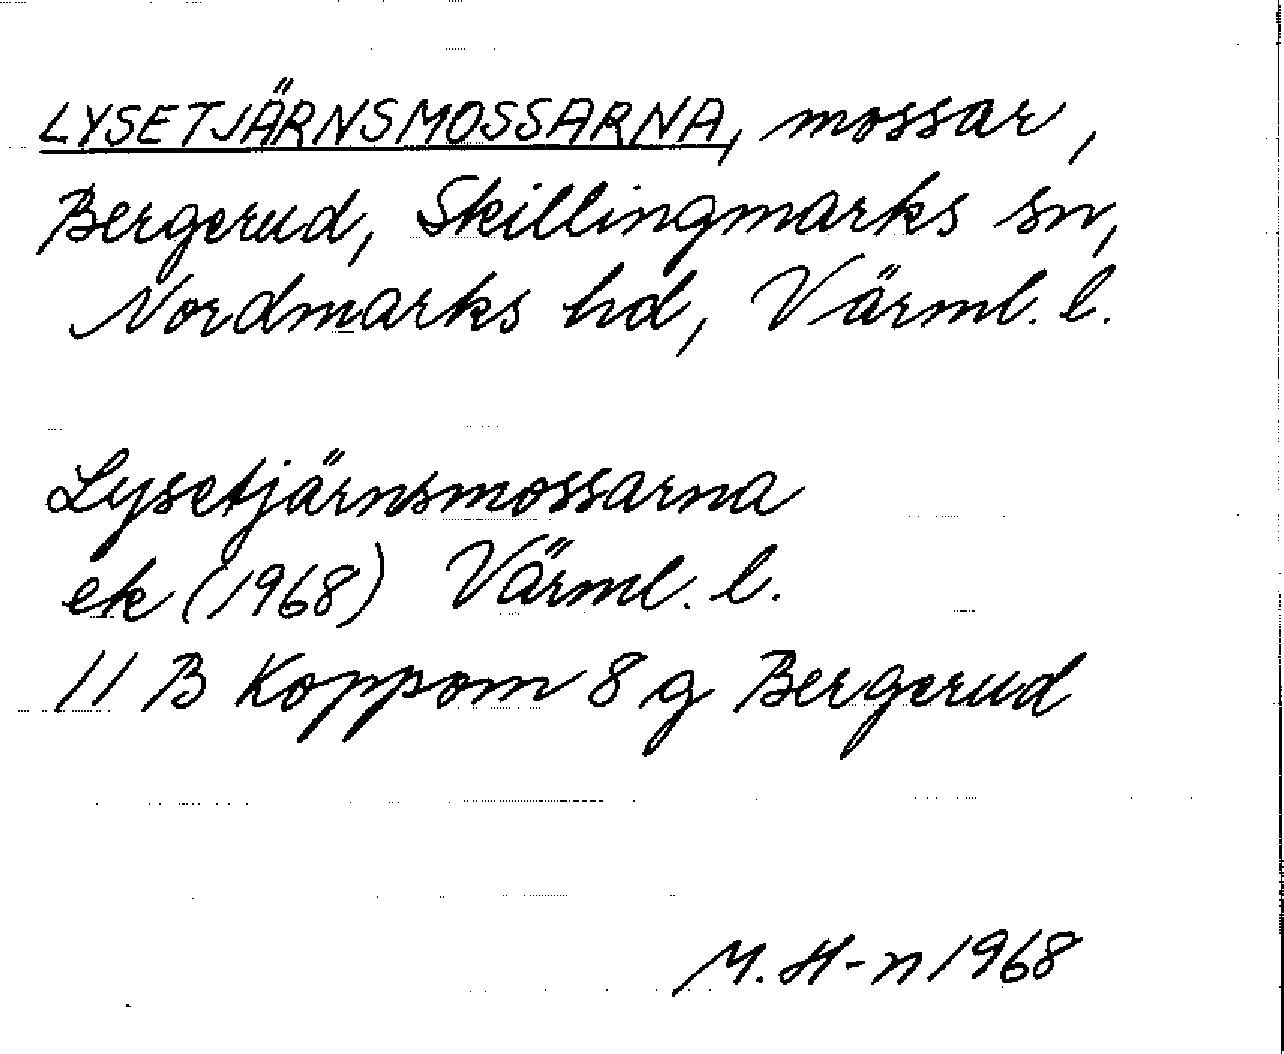 LYSETJÄRNSMOSSARNA, mossar,
Bergerud, Skillingmarks sn,
Nordmarks hd, Värml. l.
Lysetjärnsmossarna
ek (1968) Värml. l.
11 B Koppom 8 g Bergerud
M. H-n 1968